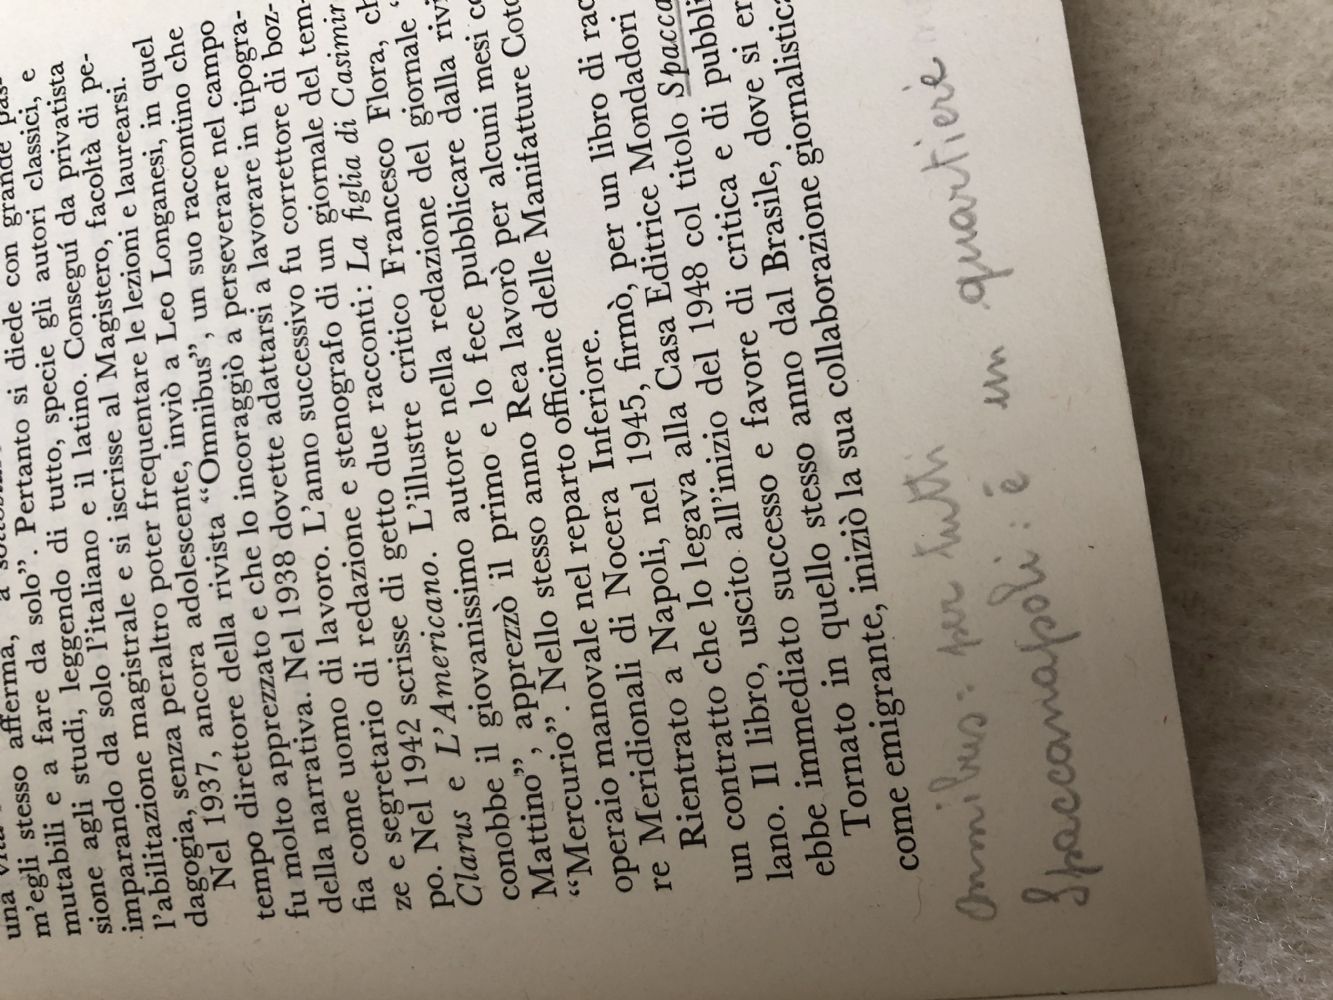 una vita
stesso afferma, a
m'egli a fare da solo”. Pertanto si diede con grande pas-
mutabili e a fare da solo”. Pertanto si diede con grande
sione agli studi, leggendo di tutto, specie gli autori classici, e
imparando da solo l'italiano e il latino. Conseguí da privatista
l'abilitazione magistrale e si iscrisse al Magistero, facoltà di pe-
dagogia, senza peraltro poter frequentare le lezioni e laurearsi.
Nel 1937, ancora adolescente, inviò a Leo Longanesi, in quel
tempo direttore della rivista “Omnibus”, un suo raccontino che
fu molto apprezzato e che lo incoraggiò a perseverare nel campo
della narrativa. Nel 1938 dovette adattarsi a lavorare in tipogra-
fia come uomo di lavoro. L'anno successivo fu correttore di boz-
ze e segretario di redazione e stenografo di un giornale del tem-
po. Nel 1942 scrisse di getto due racconti: La figlia di Casimir
Clarus e L'Americano. L'illustre critico Francesco Flora, ch
conobbe il giovanissimo autore nella redazione del giornale “
Mattino”, apprezzò il primo e lo fece pubblicare dalla rivi
“Mercurio”. Nello stesso anno Rea lavorò per alcuni mesi co
operaio manovale nel reparto officine delle Manifatture Coto
re Meridionali di Nocera Inferiore.
Rientrato a Napoli, nel 1945, firmò, per un libro di rac
un contratto che lo legava alla Casa Editrice Mondadori
lano. Il libro, uscito all'inizio del 1948 col titolo Spacca
ebbe immediato successo e favore di critica e di pubbli
Tornato in quello stesso anno dal Brasile, dove si er
come emigrante, iniziò la sua collaborazione giornalistica
Omnibus: per tutti
Spaccanapoli: è un quartiere